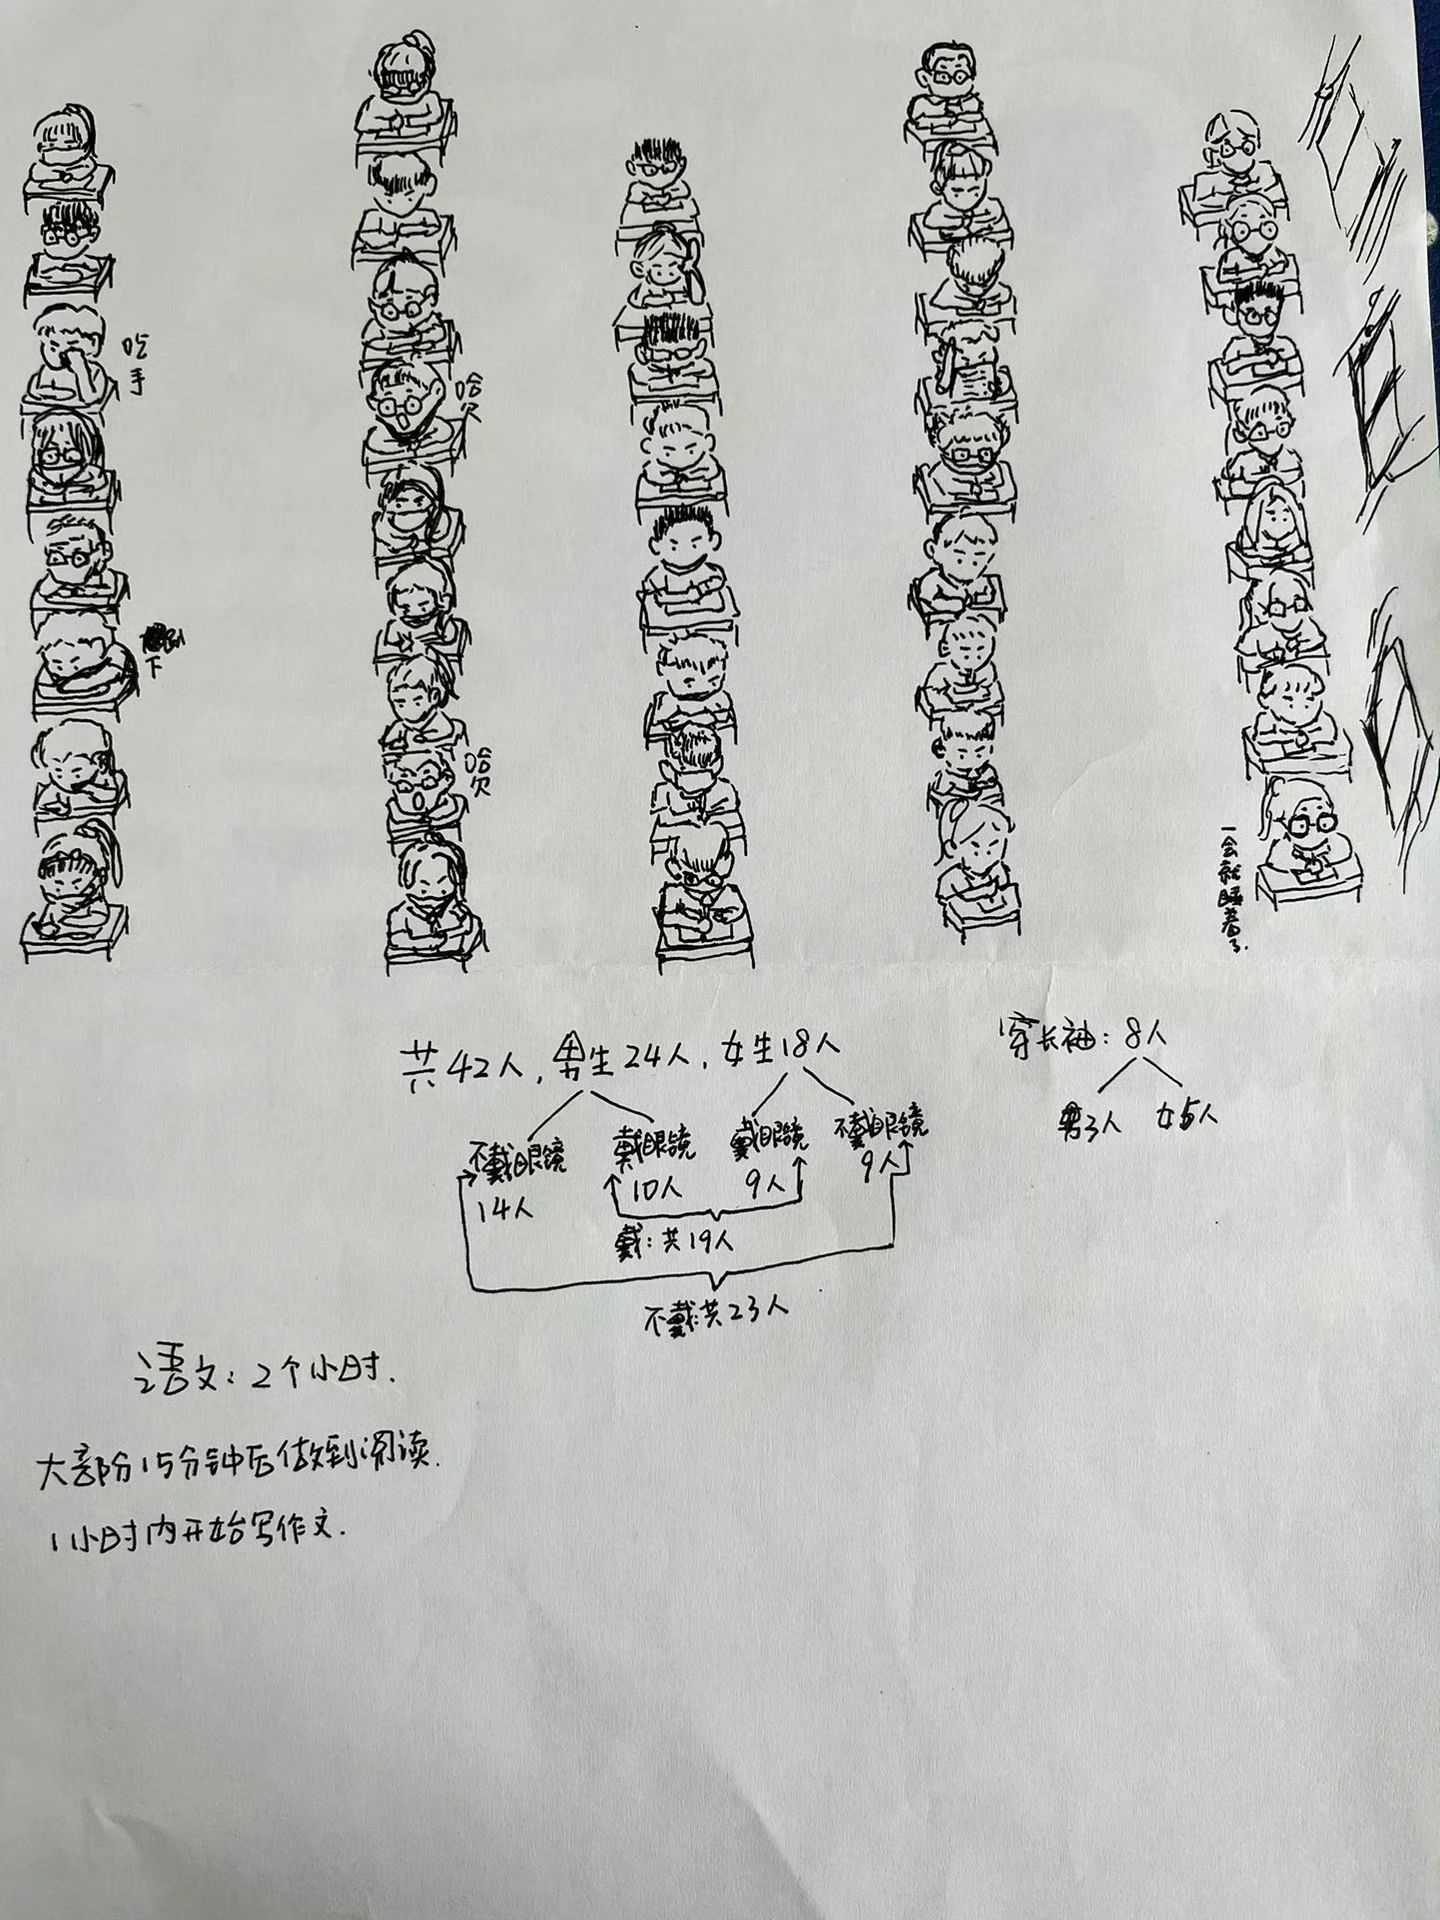 吃手
哈欠
下
哈欠
一会就睡着了.
共42人，男生24人，女生18人
穿长袖：8人
男3人 女5人
不戴眼镜 戴眼镜 戴眼镜 不戴眼镜
14人 10人 9人 9人
戴：共19人
不戴：共23人
语文：2个小时.
大部分15分钟后做到阅读.
1小时内开始写作文.